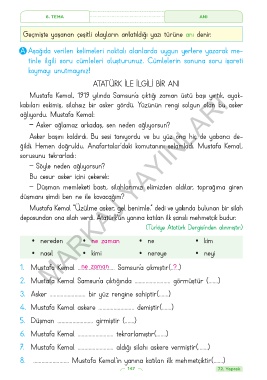 6. TEMA
ANI
Geçmişte yaşanan çeşitli olayların anlatıldığı yazı türüne anı denir.
A Aşağıda verilen kelimeleri noktalı alanlarda uygun yerlere yazarak me-
tinle ilgili soru cümleleri oluşturunuz. Cümlelerin sonuna soru işareti
koymayı unutmayınız!
ATATÜRK İLE İLGİLİ BİR ANI
Mustafa Kemal, 1919 yılında Samsun'a çıktığı zaman üstü başı yırtık, ayak-
kabıları eskimiş, silahsız bir asker gördü. Yüzünün rengi solgun olan bu asker
ağlıyordu. Mustafa Kemal:
– Asker ağlamaz arkadaş, sen neden ağlıyorsun?
Asker başını kaldırdı. Bu sesi tanıyordu ve bu yüz ona hiç de yabancı de-
ğildi. Hemen doğruldu. Anafartalar'daki komutanını selamladı. Mustafa Kemal,
sorusunu tekrarladı:
– Söyle neden ağlıyorsun?
Bu cesur asker içini çekerek:
– Düşman memleketi bastı, silahlarımızı elimizden aldılar, toprağıma giren
düşmanı şimdi ben ne ile kovacağım?
Mustafa Kemal "Üzülme asker, gel benimle." dedi ve yakında bulunan bir silah
deposundan ona silah verdi. Atatürk'ün yanına katılan ilk şanslı mehmetçik budur.
(Türkiye Atatürk Dergisinden alınmıştır.)
• nereden • ne zaman • ne • kim
• nasıl • kimi • nereye • neyi
1. Mustafa Kemal ne zaman Samsun'a çıkmıştır(.?.)
2. Mustafa Kemal Samsun'a çıktığında .................. görmüştür (......)
3. Asker .................. bir yüz rengine sahiptir(......)
4. Mustafa Kemal askere .................. demiştir(......)
5. Düşman .................. girmiştir (......)
6. Mustafa Kemal .................. tekrarlamıştır(......)
7. Mustafa Kemal .................. aldığı silahı askere vermiştir(......)
8. .................. Mustafa Kemal'in yanına katılan ilk mehmetçiktir(......)
147
72. Yaprak